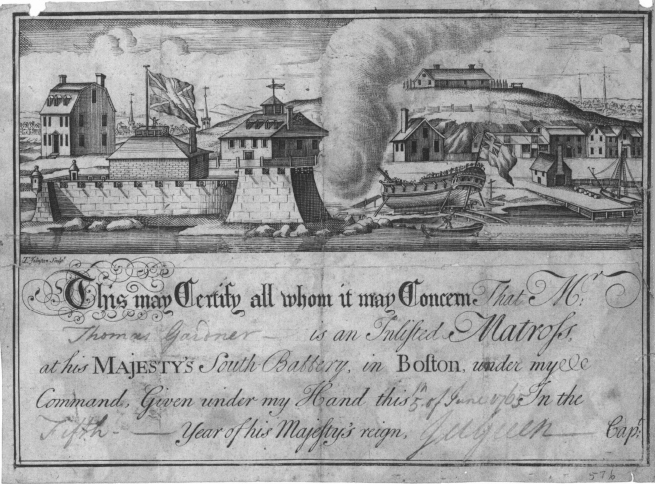 T. Johnston Sculpt
This may Certify all whom it may Concern That Mr:
Thomas Gardner is an Inliſted Matroſs,
at his MAJESTY'S South Battery, in Boſton, under my
Command, Given under my Hand this 5th of June 1765 In the
Fifth Year of his Majeſty's reign,
Capt:
576